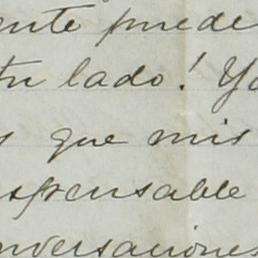 ente puede
tu lado! Yo
s que mis
spensable
nversaciones